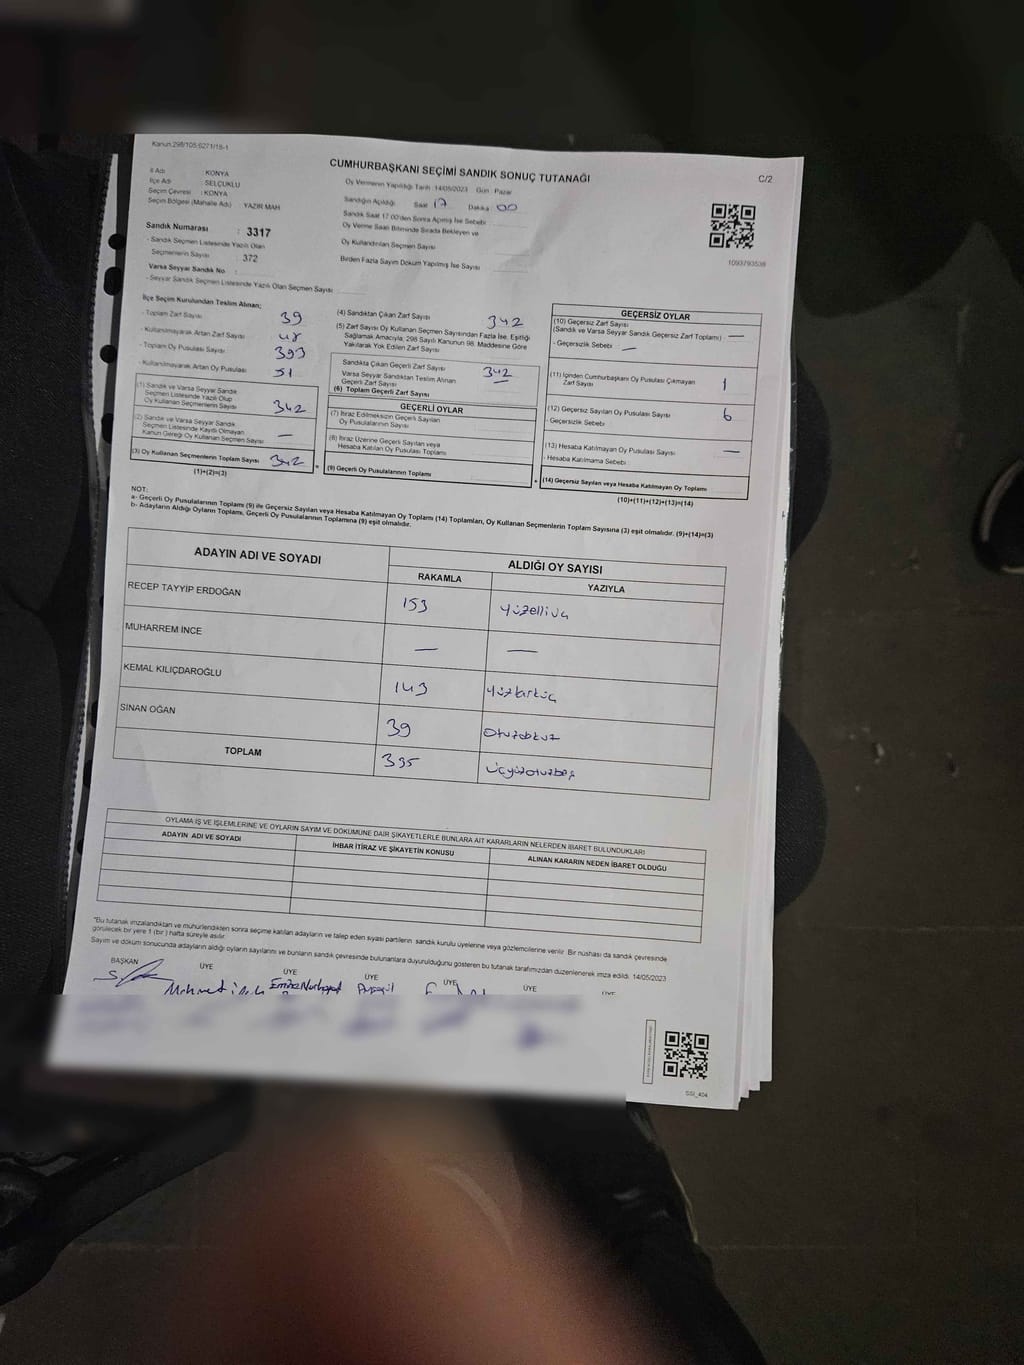 Kanun:298/105-6271/18-1
CUMHURBAŞKANI SEÇİMİ SANDIK SONUÇ TUTANAĞI
C/2
İl Adı : KONYA
İlçe Adı : SELÇUKLU
Seçim Çevresi : KONYA
Seçim Bölgesi (Mahalle Adı) : YAZIR MAH
Oy Vermenin Yapıldığı Tarih :14/05/2023 Gün : Pazar
Sandığın Açıldığı Saat 17 Dakika 00
Sandık Saat 17:00'den Sonra Açılmış İse Sebebi
Oy Verme Saati Bitiminde Sırada Bekleyen ve
Oy Kullandırılan Seçmen Sayısı
Birden Fazla Sayım Döküm Yapılmış İse Sayısı
1093793538
Sandık Numarası : 3317
- Sandık Seçmen Listesinde Yazılı Olan
Seçmenlerin Sayısı : 372
Varsa Seyyar Sandık No :
- Seyyar Sandık Seçmen Listesinde Yazılı Olan Seçmen Sayısı
İlçe Seçim Kurulundan Teslim Alınan;
- Toplam Zarf Sayısı 39
- Kullanılmayarak Artan Zarf Sayısı 48
- Toplam Oy Pusulası Sayısı 393
- Kullanılmayarak Artan Oy Pusulası 51
(1) Sandık ve Varsa Seyyar Sandık
Seçmen Listesinde Yazılı Olup
Oy Kullanan Seçmenlerin Sayısı 342
(2) Sandık ve Varsa Seyyar Sandık
Seçmen Listesinde Kayıtlı Olmayan
Kanun Gereği Oy Kullanan Seçmen Sayısı —
(3) Oy Kullanan Seçmenlerin Toplam Sayısı 342
(1)+(2)=(3)
(4) Sandıktan Çıkan Zarf Sayısı 342
(5) Zarf Sayısı Oy Kullanan Seçmen Sayısından Fazla İse, Eşitliği
Sağlamak Amacıyla; 298 Sayılı Kanunun 98. Maddesine Göre
Yakılarak Yok Edilen Zarf Sayısı
Sandıkta Çıkan Geçerli Zarf Sayısı 342
Varsa Seyyar Sandıktan Teslim Alınan
Geçerli Zarf Sayısı —
(6) Toplam Geçerli Zarf Sayısı
GEÇERLİ OYLAR
(7) İtiraz Edilmeksizin Geçerli Sayılan
Oy Pusulalarının Sayısı
(8) İtiraz Üzerine Geçerli Sayılan veya
Hesaba Katılan Oy Pusulası Toplamı
(9) Geçerli Oy Pusulalarının Toplamı
GEÇERSİZ OYLAR
(10) Geçersiz Zarf Sayısı
(Sandık ve Varsa Seyyar Sandık Geçersiz Zarf Toplamı) —
- Geçersizlik Sebebi : —
(11) İçinden Cumhurbaşkanı Oy Pusulası Çıkmayan
Zarf Sayısı 1
(12) Geçersiz Sayılan Oy Pusulası Sayısı 6
- Geçersizlik Sebebi :
(13) Hesaba Katılmayan Oy Pusulası Sayısı —
- Hesaba Katılmama Sebebi
(14) Geçersiz Sayılan veya Hesaba Katılmayan Oy Toplamı
(10)+(11)+(12)+(13)=(14)
NOT:
a- Geçerli Oy Pusulalarının Toplamı (9) ile Geçersiz Sayılan veya Hesaba Katılmayan Oy Toplamı (14) Toplamları, Oy Kullanan Seçmenlerin Toplam Sayısına (3) eşit olmalıdır. (9)+(14)=(3)
b- Adayların Aldığı Oyların Toplamı, Geçerli Oy Pusulalarının Toplamına (9) eşit olmalıdır.
ADAYIN ADI VE SOYADI
ALDIĞI OY SAYISI
RAKAMLA YAZIYLA
RECEP TAYYİP ERDOĞAN 153 Yüzelliüç
MUHARREM İNCE — —
KEMAL KILIÇDAROĞLU 143 Yüzkırküç
SİNAN OĞAN 39 Otuzdokuz
TOPLAM 335 Üçyüzotuzbeş
OYLAMA İŞ VE İŞLEMLERİNE VE OYLARIN SAYIM VE DÖKÜMÜNE DAİR ŞİKAYETLERLE BUNLARA AİT KARARLARIN NELERDEN İBARET BULUNDUKLARI
ADAYIN ADI VE SOYADI İHBAR İTİRAZ VE ŞİKAYETİN KONUSU ALINAN KARARIN NEDEN İBARET OLDUĞU
*Bu tutanak imzalandıktan ve mühürlendikten sonra seçime katılan adayların ve talep eden siyasi partilerin sandık kurulu üyelerine veya gözlemcilerine verilir. Bir nüshası da sandık çevresinde
görülecek bir yere 1 (bir ) hafta süreyle asılır.
Sayım ve döküm sonucunda adayların aldığı oyların sayılarını ve bunların sandık çevresinde bulunanlara duyurulduğunu gösteren bu tutanak tarafımızdan düzenlenerek imza edildi. 14/05/2023
BAŞKAN ÜYE ÜYE ÜYE ÜYE ÜYE ÜYE
Mehmet
SSI_404